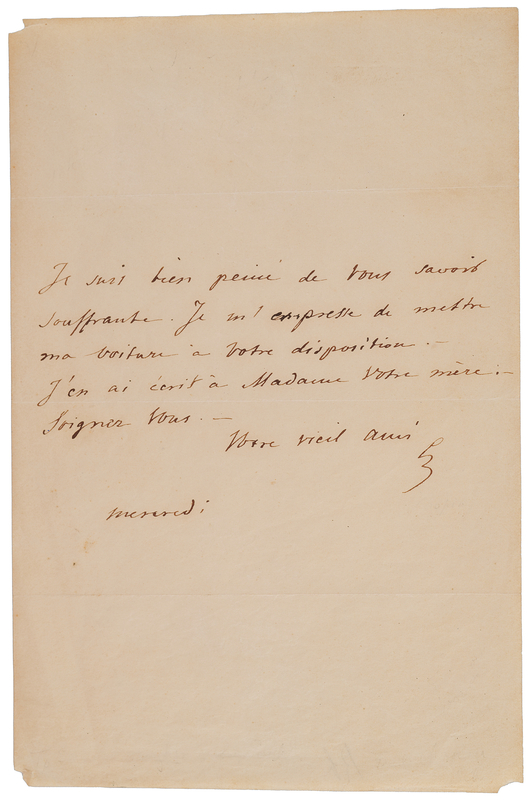 Je suis bien peiné de vous savoir
souffrante. Je m'empresse de mettre
ma voiture à votre disposition. —
J'en ai écrit à Madame votre mère. —
Soignez vous. —
Votre vieil ami
mercredi